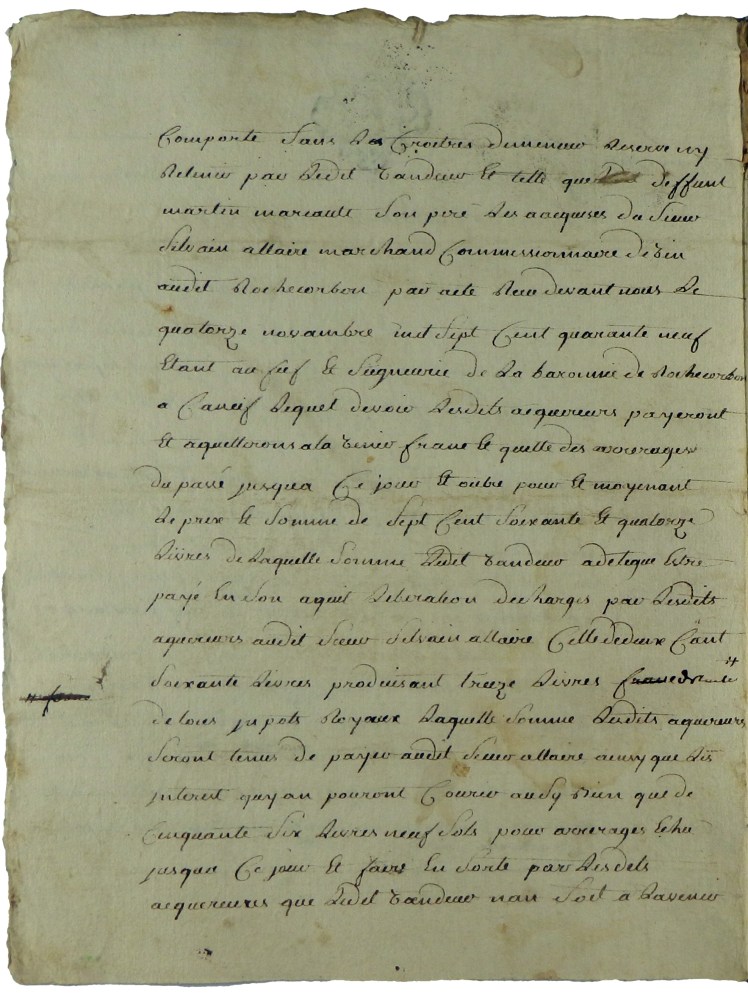 Comporte sans La Croitres diminuer Reserve ny
Retenir par Ledit Vandeur Et telle que deffunt
martin mariault son pere Les acquises du sieur
silvain allaire marchand Commissionnaire de vin
audit Rochecorbon par acte Reçu devant nous Le
quatorze novambre mil sept Cent quarante neuf
Etant au fief Et seigneurie de La baronnie de Rochecorbon
a Cancif Lequel devoir Lesdits acquereurs payeront
Et aquitterons a la venir franc Et quitte des arrerages
du passé jusqua Ce jour Et outre pour Et moyenant
Le prix Et somme de sept Cent soixante Et quatorze
Livres de Laquelle somme Ledit Vandeur a delegué Estre
payé En son aquit Liberation decharges par Lesdits
aquereurs audit sieur silvain allaire Celle de deux Cant
soixante Livres produisant treize Livres de rente
de tous jnpots Royaux Laquelle somme Lesdits aquereurs
seront tenus de payer audit sieur allaire ainsy que Les
jnterest quy an pouront Courir ausy bien que de
Cinquante six Livres neuf sols pour arrerages Echu
jusqua Ce jour Et faire En sorte par Lesdits
acquereures que Ledit Vandeur nan soit a Lavenir